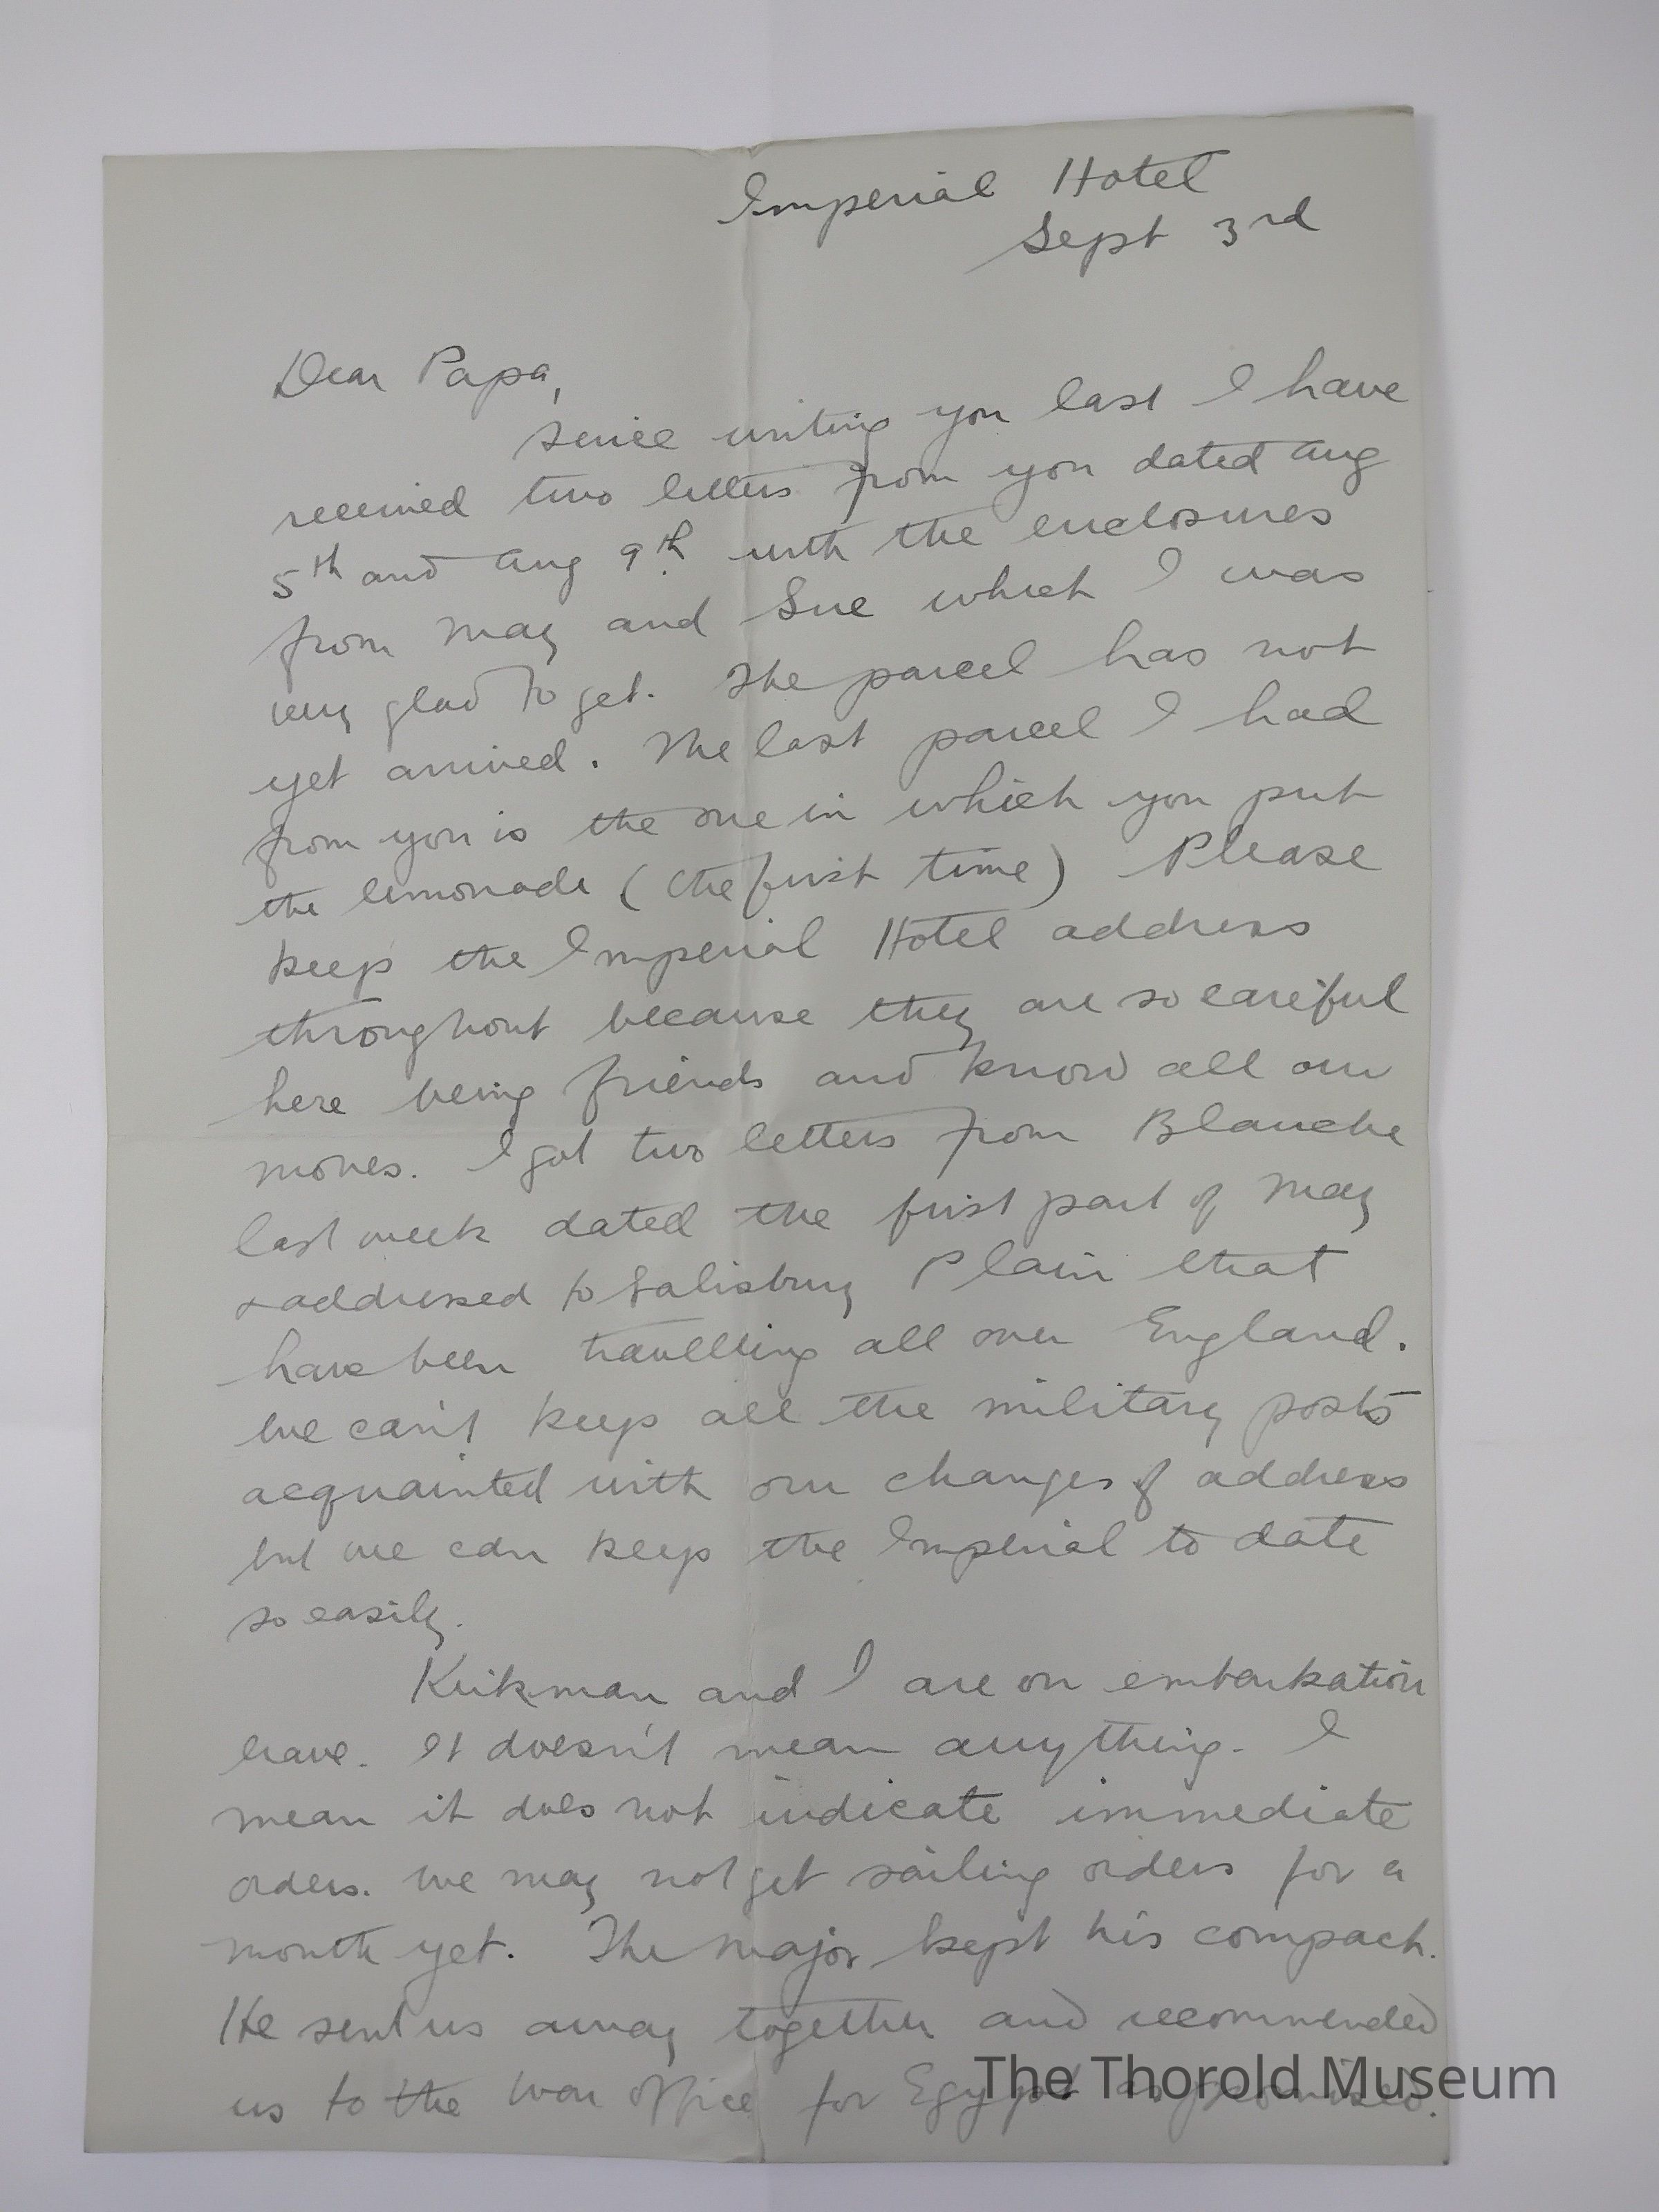 Imperial Hotel
Sept 3rd
Dear Papa,
Since writing you last I have
received two letters from you dated Aug
5th and Aug 9th with the enclosures
from May and Sue which I was
very glad to get. The parcel has not
yet arrived. The last parcel I had
from you is the one in which you put
the lemonade (the first time) Please
keep the Imperial Hotel address
throughout because they are so careful
here being friends and know all our
moves. I got two letters from Blanche
last week dated the first part of May
& addressed to Salisbury Plain that
have been travelling all over England.
We can't keep all the military posts
acquainted with our changes of address
but we can keep the Imperial to date
so easily.
Kirkman and I are on embarkation
leave. It doesn't mean anything. I
mean it does not indicate immediate
orders. We may not get sailing orders for a
month yet. The major kept his compact.
He sent us away together and recommended
us to the War Office for Egypt as promised.
The Thorold Museum